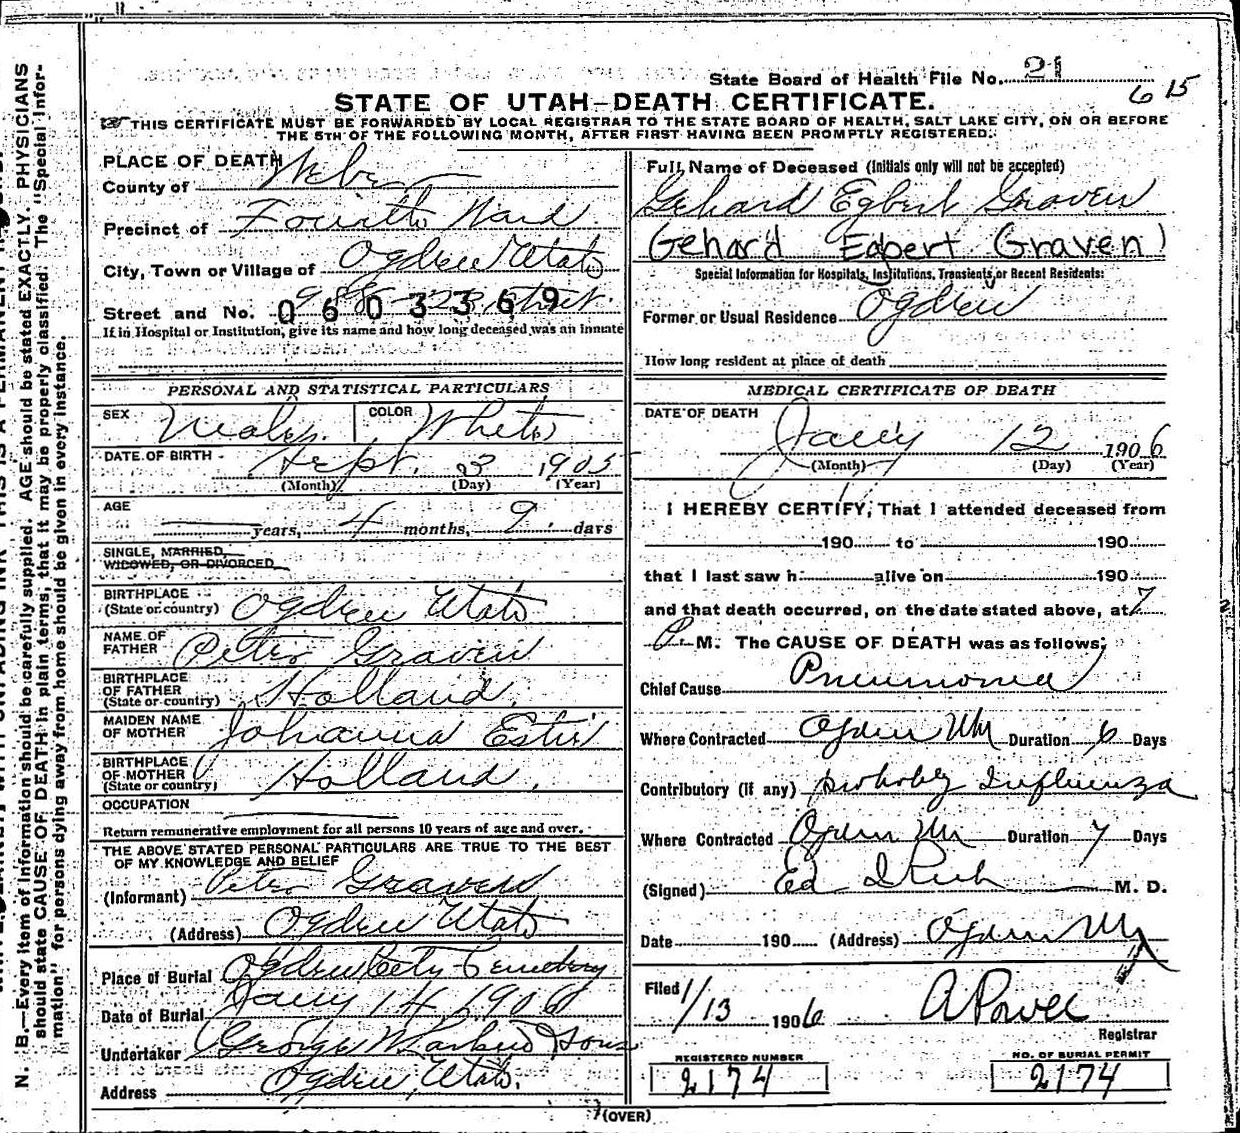 State Board of Health File No. 21
6 15
STATE OF UTAH—DEATH CERTIFICATE.
THIS CERTIFICATE MUST BE FORWARDED BY LOCAL REGISTRAR TO THE STATE BOARD OF HEALTH, SALT LAKE CITY, ON OR BEFORE
THE 5TH OF THE FOLLOWING MONTH, AFTER FIRST HAVING BEEN PROMPTLY REGISTERED.
PLACE OF DEATH
County of Weber
Precinct of Fourth Ward
City, Town or Village of Ogden Utah
Street and No. 23 Street.
0603369
If in Hospital or Institution, give its name and how long deceased was an inmate
Full Name of Deceased (Initials only will not be accepted)
Gehard Egbert Graven
Gehard Egbert Graven)
Special Information for Hospitals, Institutions, Transients, or Recent Residents:
Former or Usual Residence Ogden
How long resident at place of death
PERSONAL AND STATISTICAL PARTICULARS
SEX Male COLOR White
DATE OF BIRTH Sept. 3 1905
(Month) (Day) (Year)
AGE
years, 4 months, 9 days
SINGLE, MARRIED,
WIDOWED, OR DIVORCED
BIRTHPLACE
(State or country) Ogden Utah
NAME OF
FATHER Peter Graven
BIRTHPLACE
OF FATHER
(State or country) Holland
MAIDEN NAME
OF MOTHER Johanna
BIRTHPLACE
OF MOTHER
(State or country) Holland.
OCCUPATION
Return remunerative employment for all persons 10 years of age and over.
THE ABOVE STATED PERSONAL PARTICULARS ARE TRUE TO THE BEST
OF MY KNOWLEDGE AND BELIEF
(Informant) Peter Graven
(Address) Ogden Utah
Place of Burial Ogden City Cemetery
Date of Burial Jany 14 1906
Undertaker George W Larkin & Sons
Address Ogden, Utah.
MEDICAL CERTIFICATE OF DEATH
DATE OF DEATH
Jany 12 1906
(Month) (Day) (Year)
I HEREBY CERTIFY, That I attended deceased from
190 to 190
that I last saw h alive on 190
and that death occurred, on the date stated above, at 7
P M. The CAUSE OF DEATH was as follows:
Chief Cause Pneumonia
Where Contracted Ogden Duration 6 Days
Contributory (if any) probably Influenza
Where Contracted Ogden Duration 7 Days
(Signed) Ed I Rich M. D.
Date 190 (Address) Ogden
Filed 1/13 1906 A Powell
Registrar
REGISTERED NUMBER
2174
NO. OF BURIAL PERMIT
2174
(OVER)
N. B.—Every item of information should be carefully supplied. AGE should be stated EXACTLY. PHYSICIANS
should state CAUSE OF DEATH in plain terms, that it may be properly classified. The "Special Infor-
mation" for persons dying away from home should be given in every instance.